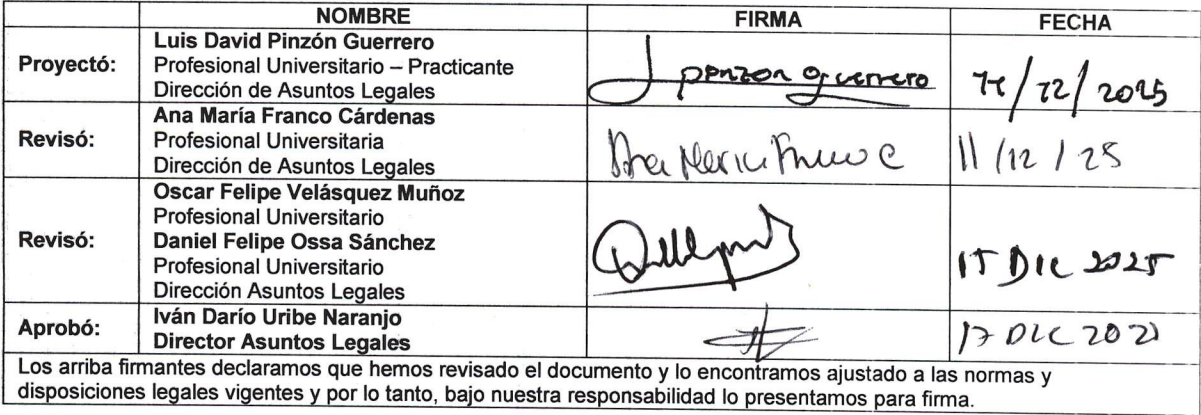 NOMBRE FIRMA FECHA
Proyectó:
Luis David Pinzón Guerrero
Profesional Universitario – Practicante
Dirección de Asuntos Legales
pinzon guerrero
11/12/2025
Revisó:
Ana María Franco Cárdenas
Profesional Universitaria
Dirección de Asuntos Legales
Ana Maria Franco C
11/12/25
Revisó:
Oscar Felipe Velásquez Muñoz
Profesional Universitario
Daniel Felipe Ossa Sánchez
Profesional Universitario
Dirección Asuntos Legales
15 DIC 2025
Aprobó:
Iván Darío Uribe Naranjo
Director Asuntos Legales
17 DIC
Los arriba firmantes declaramos que hemos revisado el documento y lo encontramos ajustado a las normas y
disposiciones legales vigentes y por lo tanto, bajo nuestra responsabilidad lo presentamos para firma.